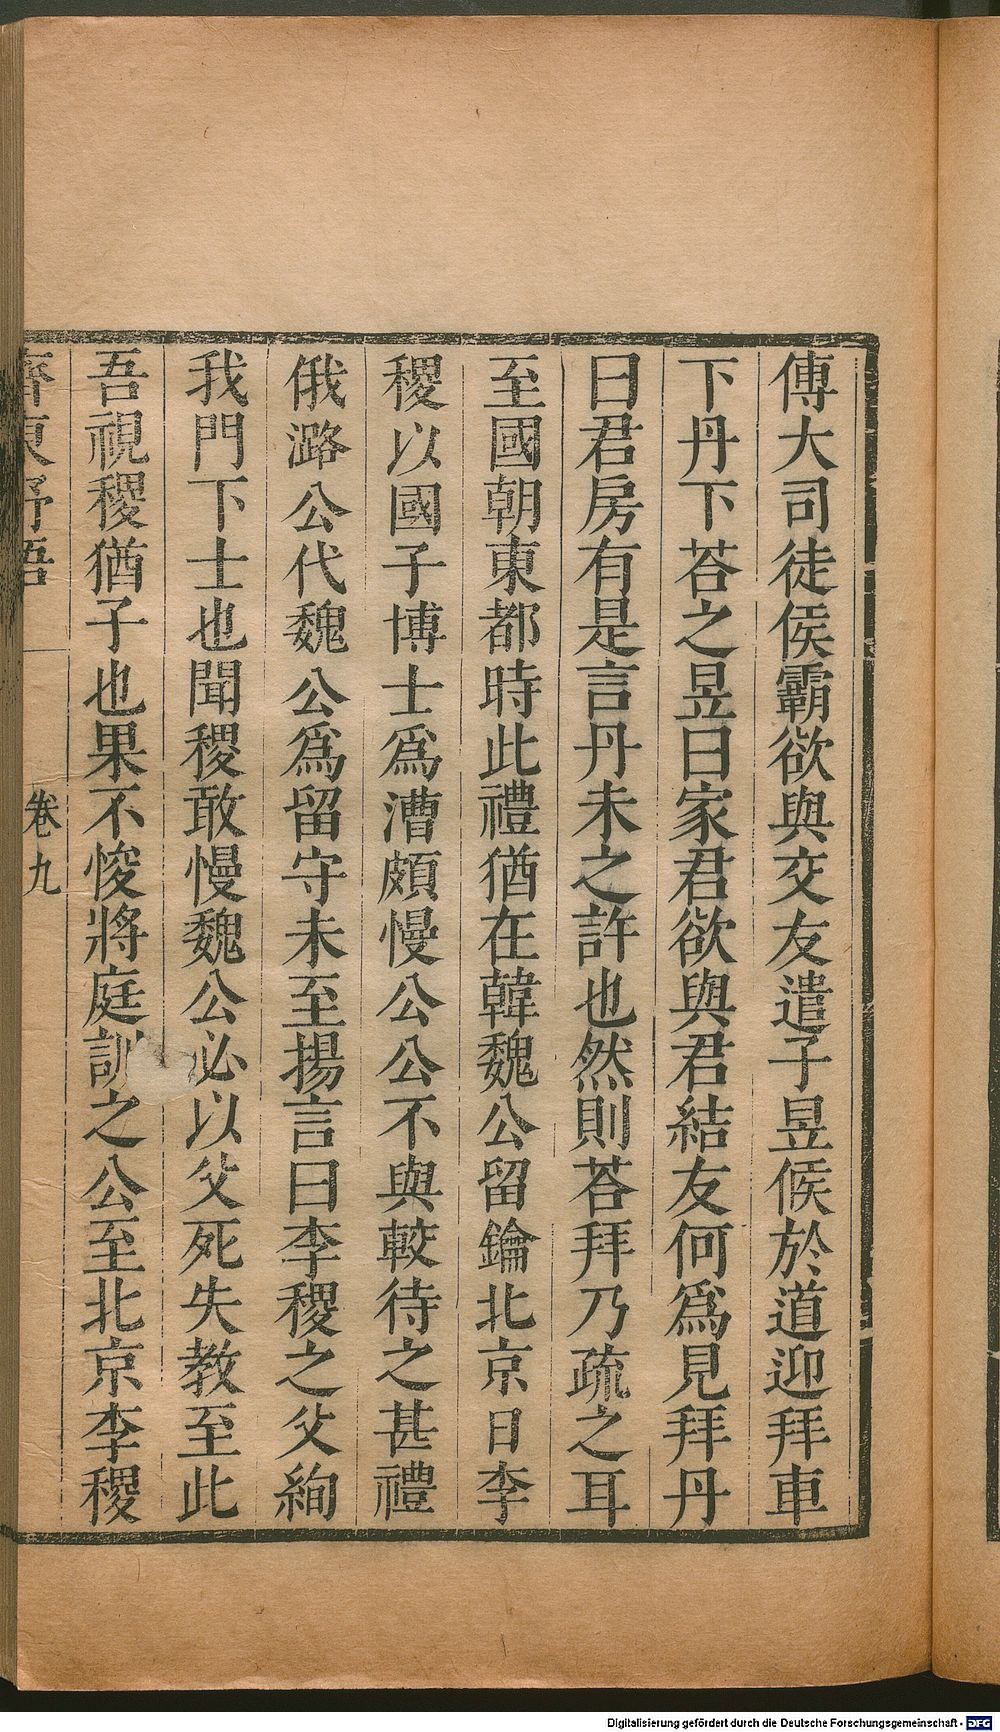 傅大司徒侯霸欲與交友遣子昱候於道迎拜車
下丹下荅之昱曰家君欲與君結友何爲見拜丹
曰君房有是言丹未之許也然則荅拜乃疏之耳
至國朝東都時此禮猶在韓魏公留鑰北京日李
稷以國子博士爲漕頗慢公公不與較待之甚禮
俄潞公代魏公爲留守未至揚言曰李稷之父絢
我門下士也聞稷敢慢魏公必以父死失教至此
吾視稷猶子也果不悛將庭訓之公至北京李稷
齊東野語
卷九
Digitalisierung gefördert durch die Deutsche Forschungsgemeinschaft - DFG